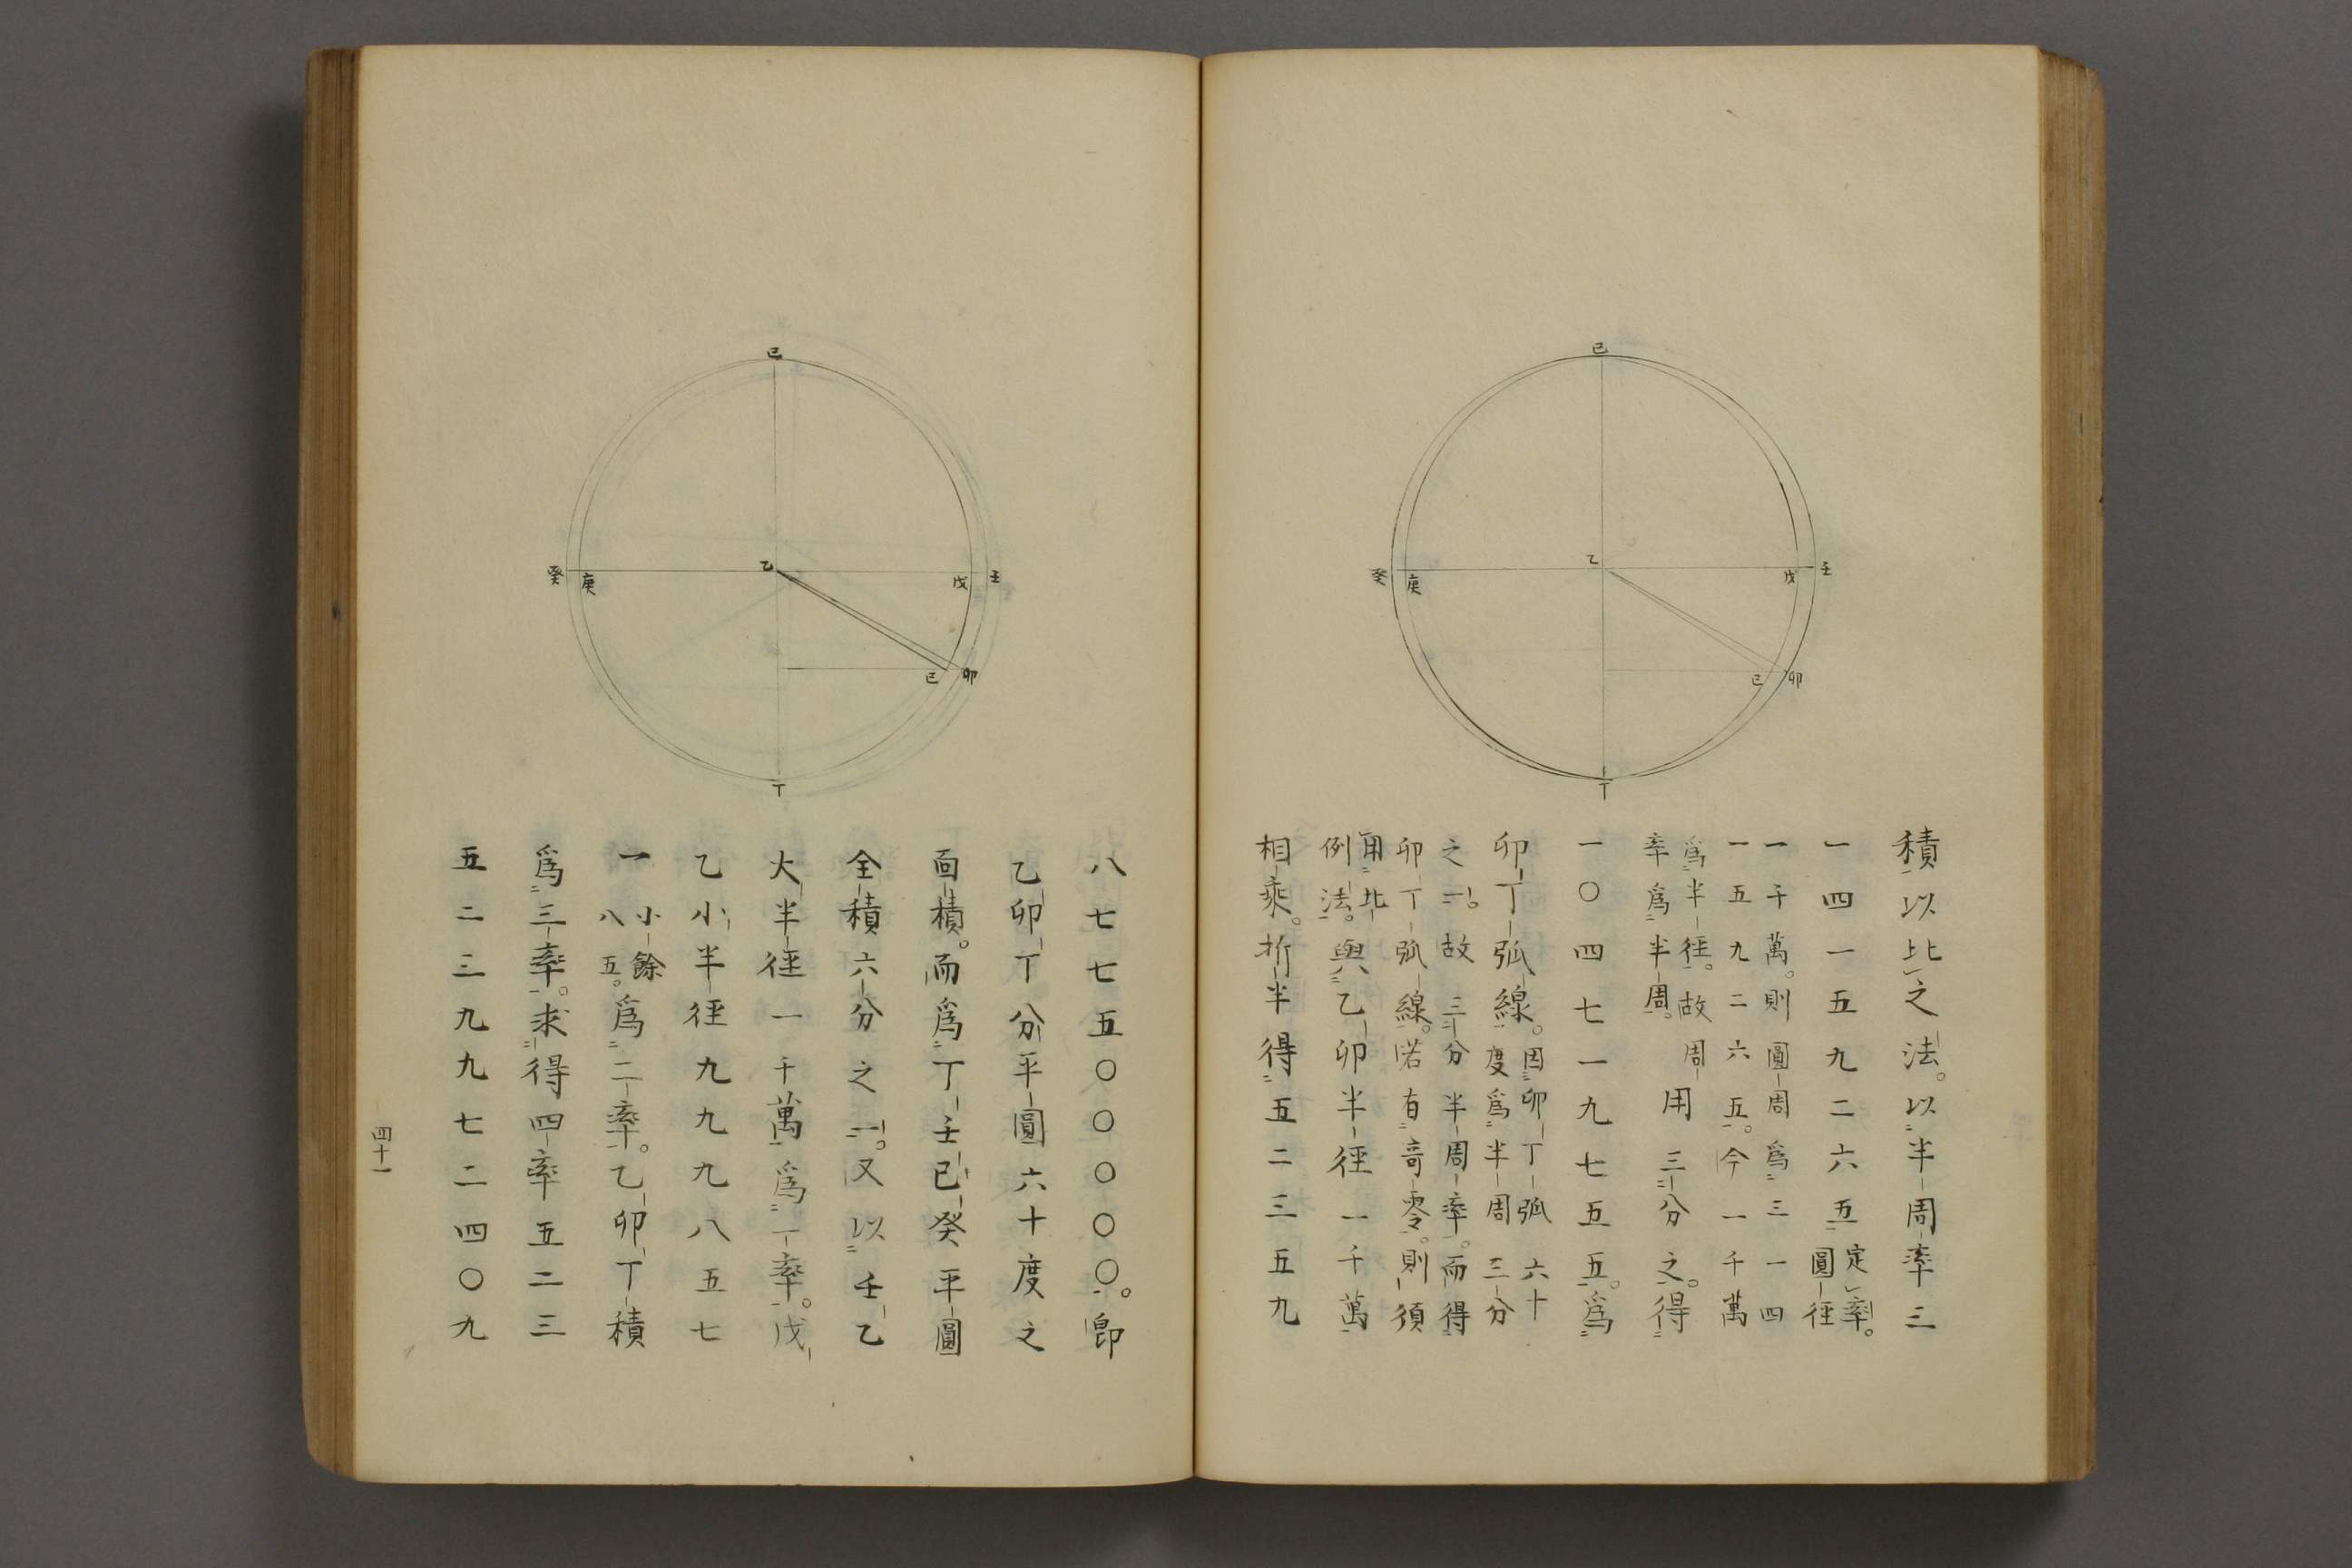 己
癸
庚
乙
戊
壬
己
卯
丁
積以比之法。以半周率三
一四一五九二六五定率。
圓徑
一千萬。則圓周爲三一四
一五九二六五。今一千萬
爲半徑。故周
率爲半周。
用三分之。得
一〇四七一九七五五。爲
卯丁弧線。因卯丁弧六十
度爲半周三分
之一。故三分半周率。而得
卯丁弧線。偌有奇零。則須
用比
例法。與乙卯半徑一千萬
相乘。折半得五二三五九
己
癸
庚
乙
戊
壬
己
卯
丁
八七七五〇〇〇〇〇。卽
乙卯丁分平圓六十度之
面積。而爲丁壬己癸平圓
全積六分之一。又以壬乙
大半徑一千萬爲一率。戊
乙小半徑九九九八五七
一小餘
八五。爲二率。乙卯丁積
爲三率。求得四率五二三
五二三九九七二四〇九
四十一